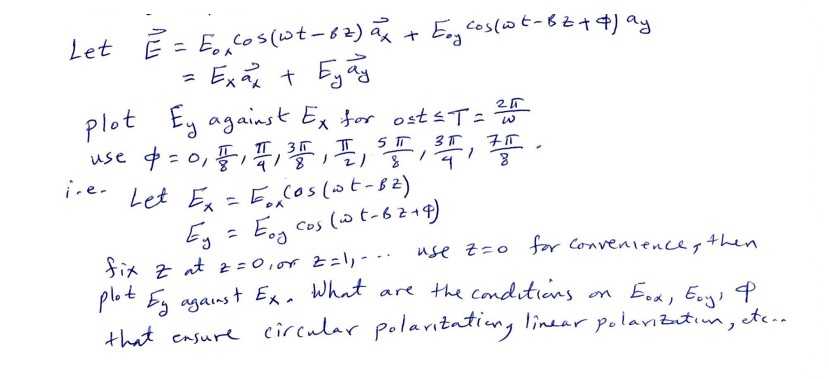 Let E⃗ = E₀ₓcos(ωt-βz) a⃗ₓ + E₀ᵧ cos(ωt-βz+φ) aᵧ
= Eₓa⃗ₓ + Eᵧa⃗ᵧ
plot Eᵧ against Eₓ for 0≤t≤T = 2π/ω
use φ = 0, π/8, π/4, 3π/8, π/2, 5π/8, 3π/4, 7π/8.
i.e. Let Eₓ = E₀ₓcos(ωt-βz)
Eᵧ = E₀ᵧ cos(ωt-βz+φ)
fix z at z=0, or z=1, ... use z=0 for convenience, then
plot Eᵧ against Eₓ. What are the conditions on E₀ₓ, E₀ᵧ, φ
that ensure circular polarization, linear polarization, etc...